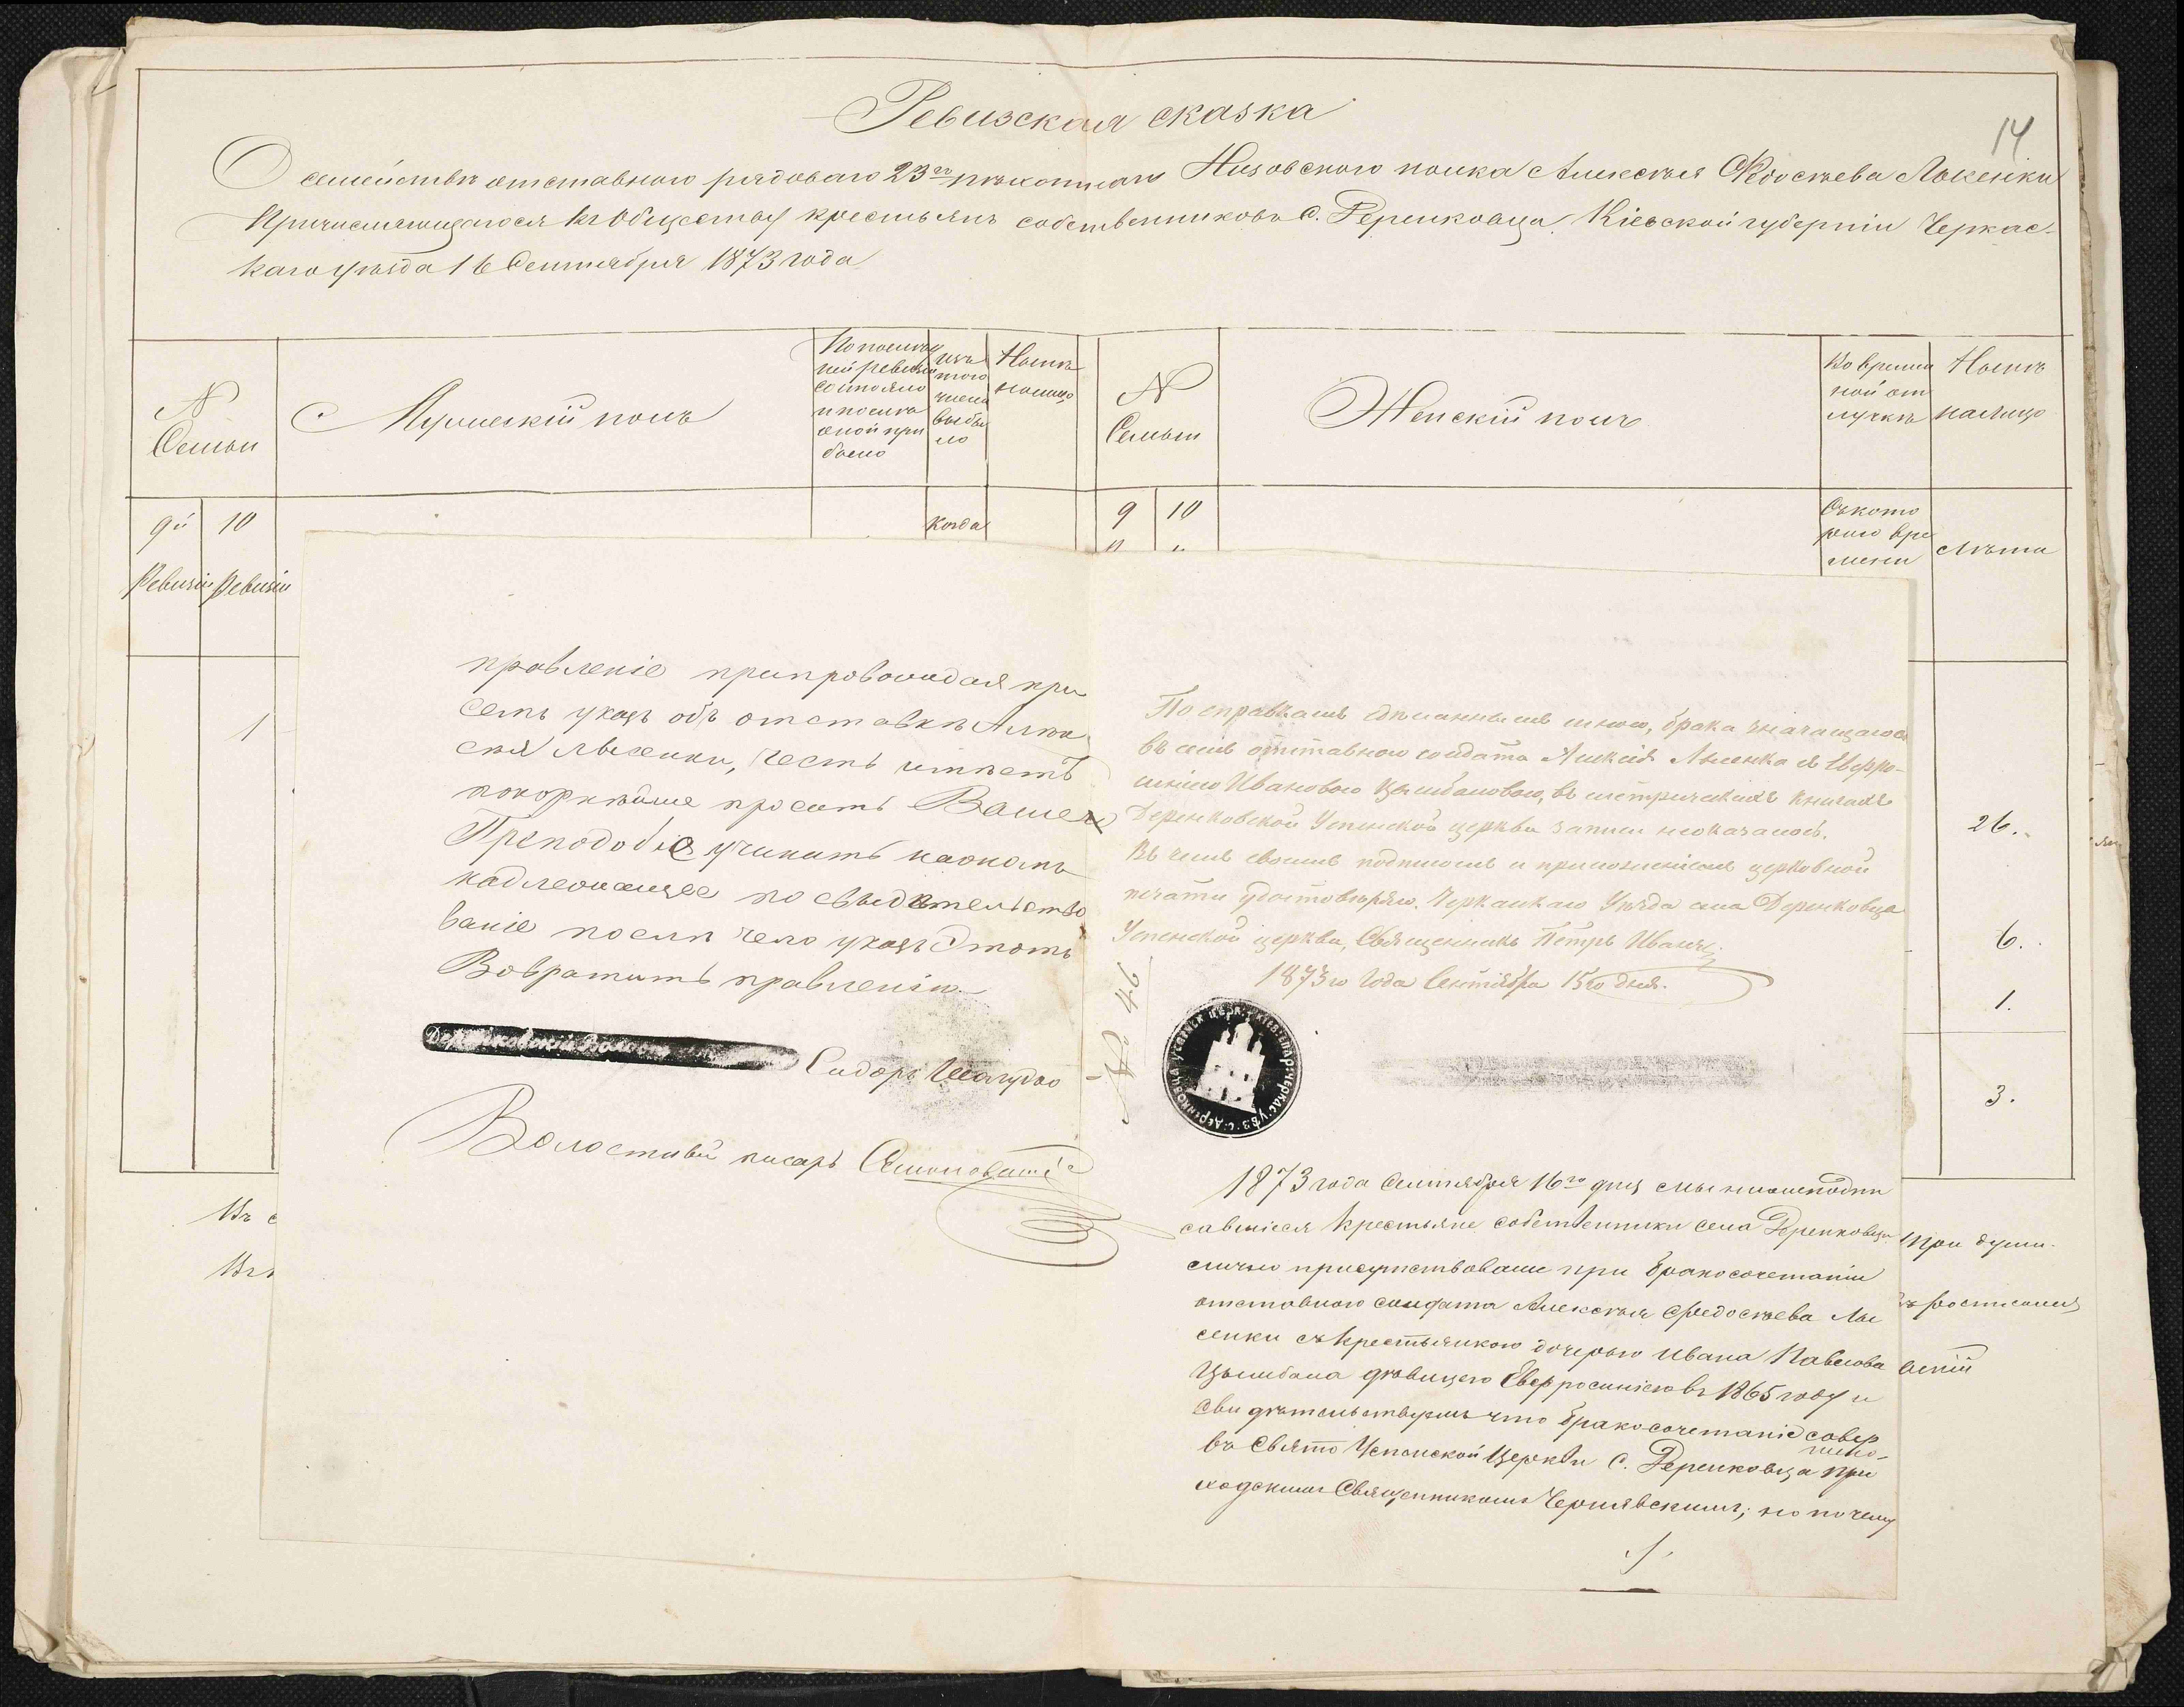 Ревизская сказка
14
О семействѣ отставнаго рядоваго 23го пѣхотнаго Низовскаго полка Алексѣя Федосѣева Лысенки
Причисляющагося къ Обществу крестьянъ собственниковъ с. Деренковца, Кіевской губерніи Черкас-
каго уѣзда 16 Сентября 1873 года
N
Семьи
Мужескій полъ
По послѣд
ней ревизіи
состояло
и послѣ
оной при
было
изъ
того
числа
выбы
ло
Нынѣ
на лицо
N
Семьи
Женскій полъ
Во времен
ной от
лучкѣ
Нынѣ
на лицо
9й
10
Ревизіи
Ревизіи
когда
9
10
"
"
Съ кото
раго вре
мени
Лѣта
1
26.
6.
1.
3.
правленіе припровождая при
семъ указъ объ отставкѣ Алек
сѣя Лысенки, честь имѣетъ
покорнѣйше просить Ваше
Преподобіе учинить на ономъ
надлежащее по свидѣтельство
ваніе послѣ чего указъ этотъ
Возвратить правленію.
Деренковскій Волост
Сидоръ
Волостный писарь
№ 46
По справкамъ сдѣланнымъ мною, брака значащагося
въ семъ отставнаго солдата Алексія Лысенка съ Евфро-
синіею Ивановою Цымбаловою, въ метрическихъ книгахъ
Деренковской Успенской церкви записи неоказалось.
Въ чемъ своимъ подписомъ и приложеніемъ церковной
печати удостовѣряю. Черкаскаго Уѣзда села Деренковца
Успенской церкви, Священникъ Петръ
1873го Года Сентября 15го дня.
1873 года Сентября 16го дня мы нижеподпи
савшіеся крестьяне собственники села Деренковца
лично присутствовали при бракосочетаніи
отставного солдата Алексѣя Федосѣева Лы
сенки съ крестьянкою дочерью Ивана Павлова
Цымбала дѣвицею Евфросиніею въ 1865 году и
свидѣтельствуемъ что бракосочетаніе совер
шено
въ Свято Успенской Церкви с. Деренковца при
ходскимъ Священникомъ Чернявскимъ; но почему
Въ с
три души.